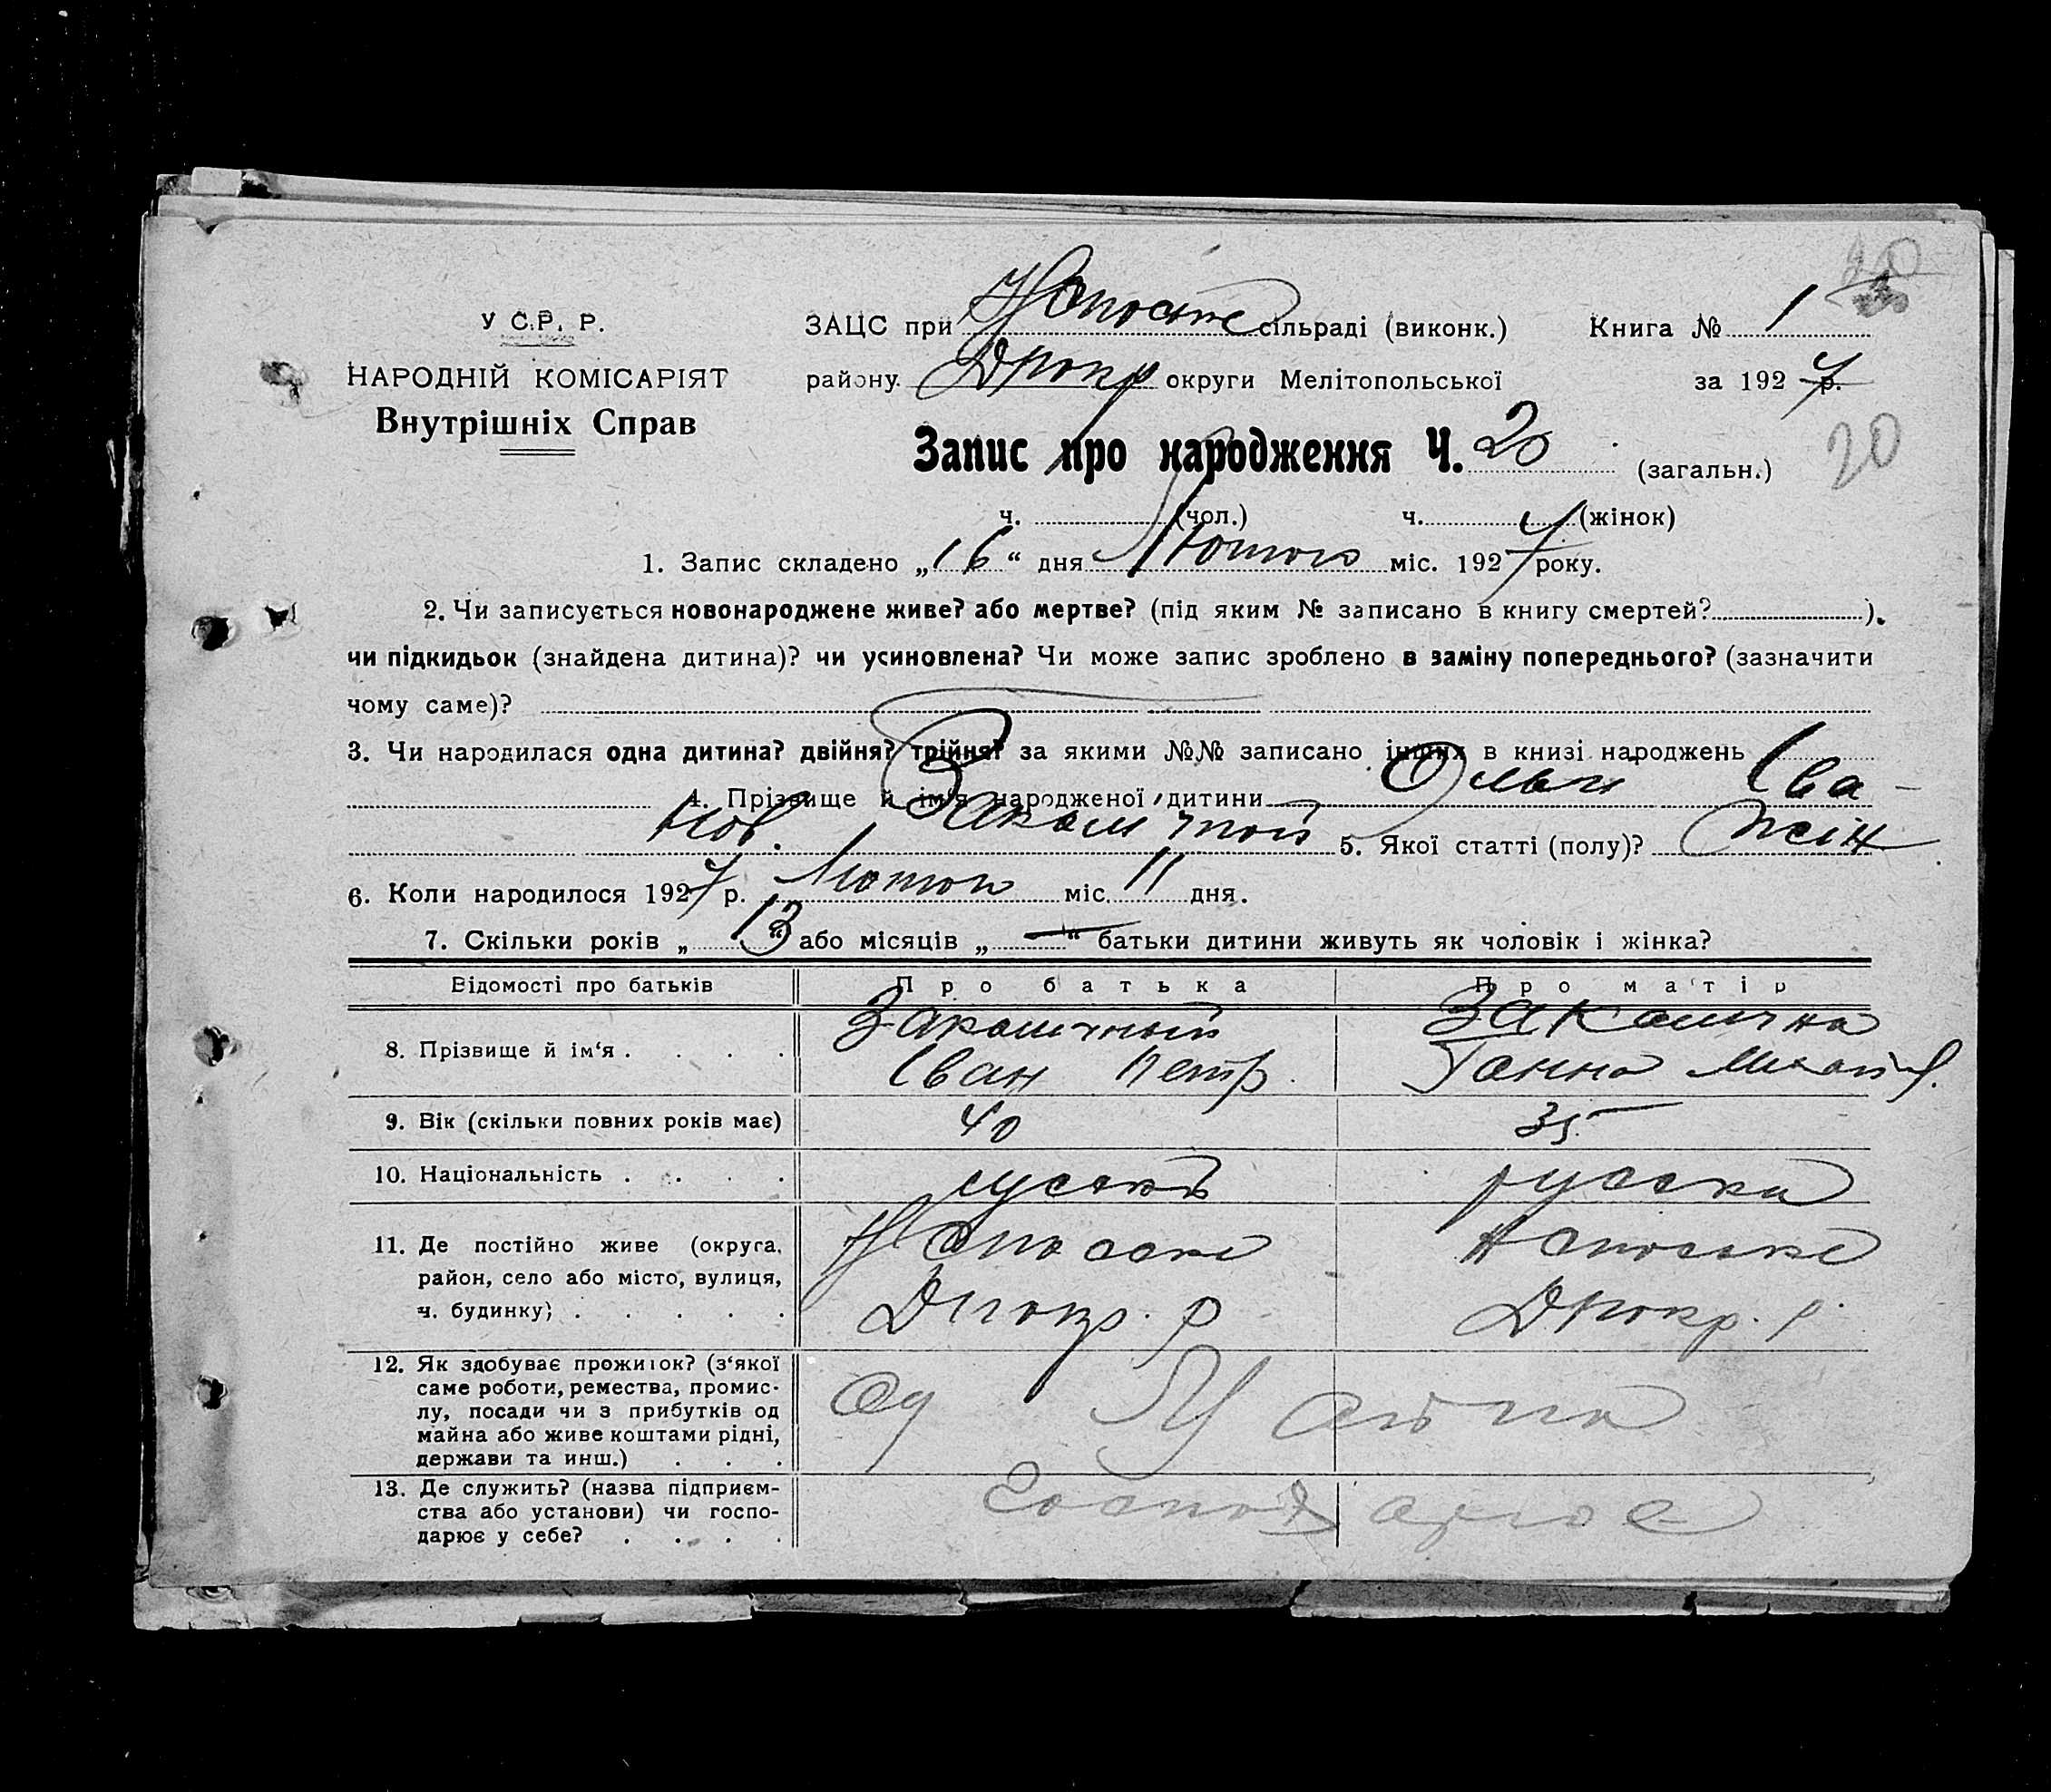 У С.Р. Р.
НАРОДНІЙ КОМІСАРІЯТ
Внутрішніх Справ
ЗАЦС при сільраді (виконк.) Книга № 1
району Дпокр округи Мелітопольської за 1927 р.
Запис про народження Ч. 20 (загальн.) 20
ч. (чол.) ч. (жінок)
1. Запис складено „16“ дня Лютого міс. 1927 року.
2. Чи записується новонароджене живе? або мертве? (під яким № записано в книгу смертей? ),
чи підкидьок (знайдена дитина)? чи усиновлена? Чи може запис зроблено в заміну попереднього? (зазначити
чому саме)?
3. Чи народилася одна дитина? двійня? трійня? за якими №№ записано інших в книзі народжень
4. Прізвище й ім‘я народженої дитини Ольги Іва-
нов. 5. Якої статті (полу)? жін
6. Коли народилося 1927 р. Лютого міс. 11 дня.
7. Скільки років „13“ або місяців „—“ батьки дитини живуть як чоловік і жінка?
Відомості про батьків Про батька Про матір
8. Прізвище й ім‘я . . . . Заколичный Заколична
Іван Петр. Ганна Михайл.
9. Вік (скільки повних років має) 40 35
10. Національність . . . . руський руська
11. Де постійно живе (округа,
район, село або місто, вулиця,
ч. будинку) . . . . . Дпокр. р Дпокр. р.
12. Як здобуває прожиток? (з‘якої
саме роботи, ремества, промис-
лу, посади чи з прибутків од
майна або живе коштами рідні,
держави та инш.) . . . Од Майна
13. Де служить? (назва підприєм-
ства або установи) чи госпо-
дарює у себе? . . . . Господарює